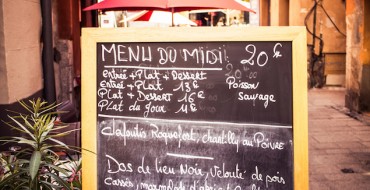 MENU DU MIDI 20€
Entrée + Plat + Dessert
Entrée + Plat 13€
Plat + Dessert 16€
Plat du jour 11€
Poisson
sauvage
Clafoutis Roquefort, chantilly au Poivre
Dos de lieu Noir, Velouté de pois
Cassés, marmelade d'